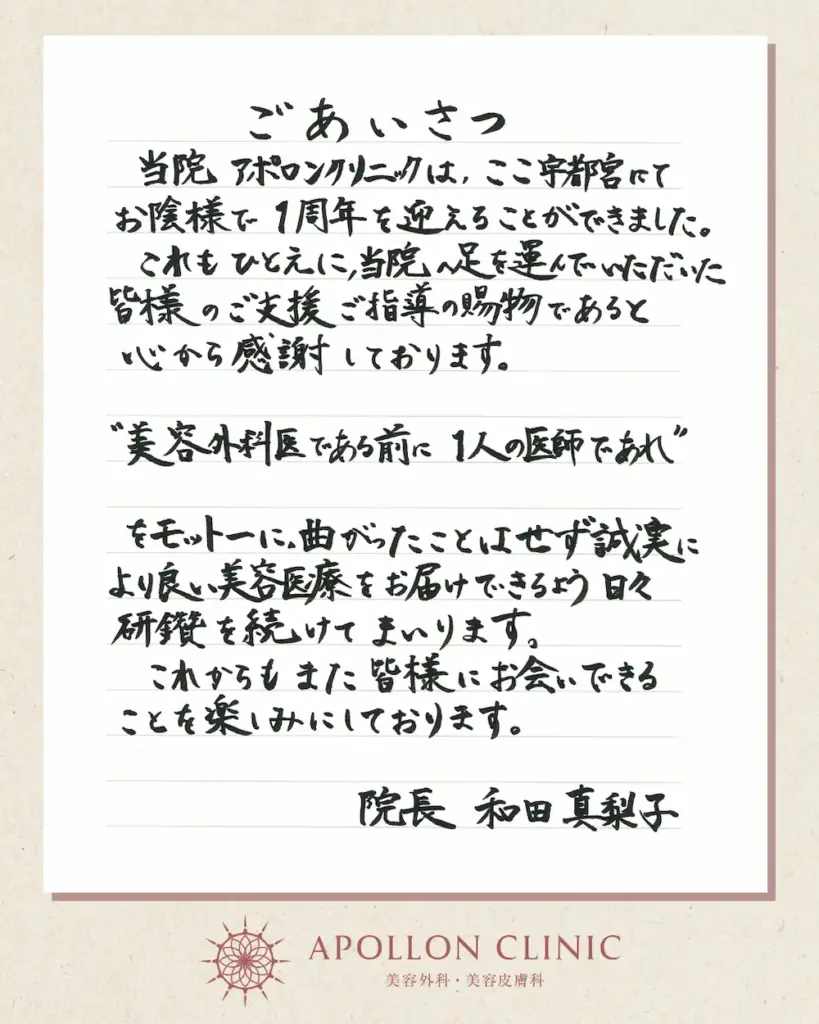 ごあいさつ
当院 アポロンクリニックは、ここ宇都宮にて
お陰様で 1周年を迎えることができました。
これも ひとえに、当院へ足を運んでいただいた
皆様のご支援 ご指導の賜物であると
心から感謝しております。
"美容外科医である前に 1人の医師であれ"
をモットーに、曲がったことはせず誠実に
より良い美容医療をお届けできるよう 日々
研鑽を続けてまいります。
これからもまた皆様にお会いできる
ことを楽しみにしております。
院長 和田真梨子
APOLLON CLINIC
美容外科・美容皮膚科